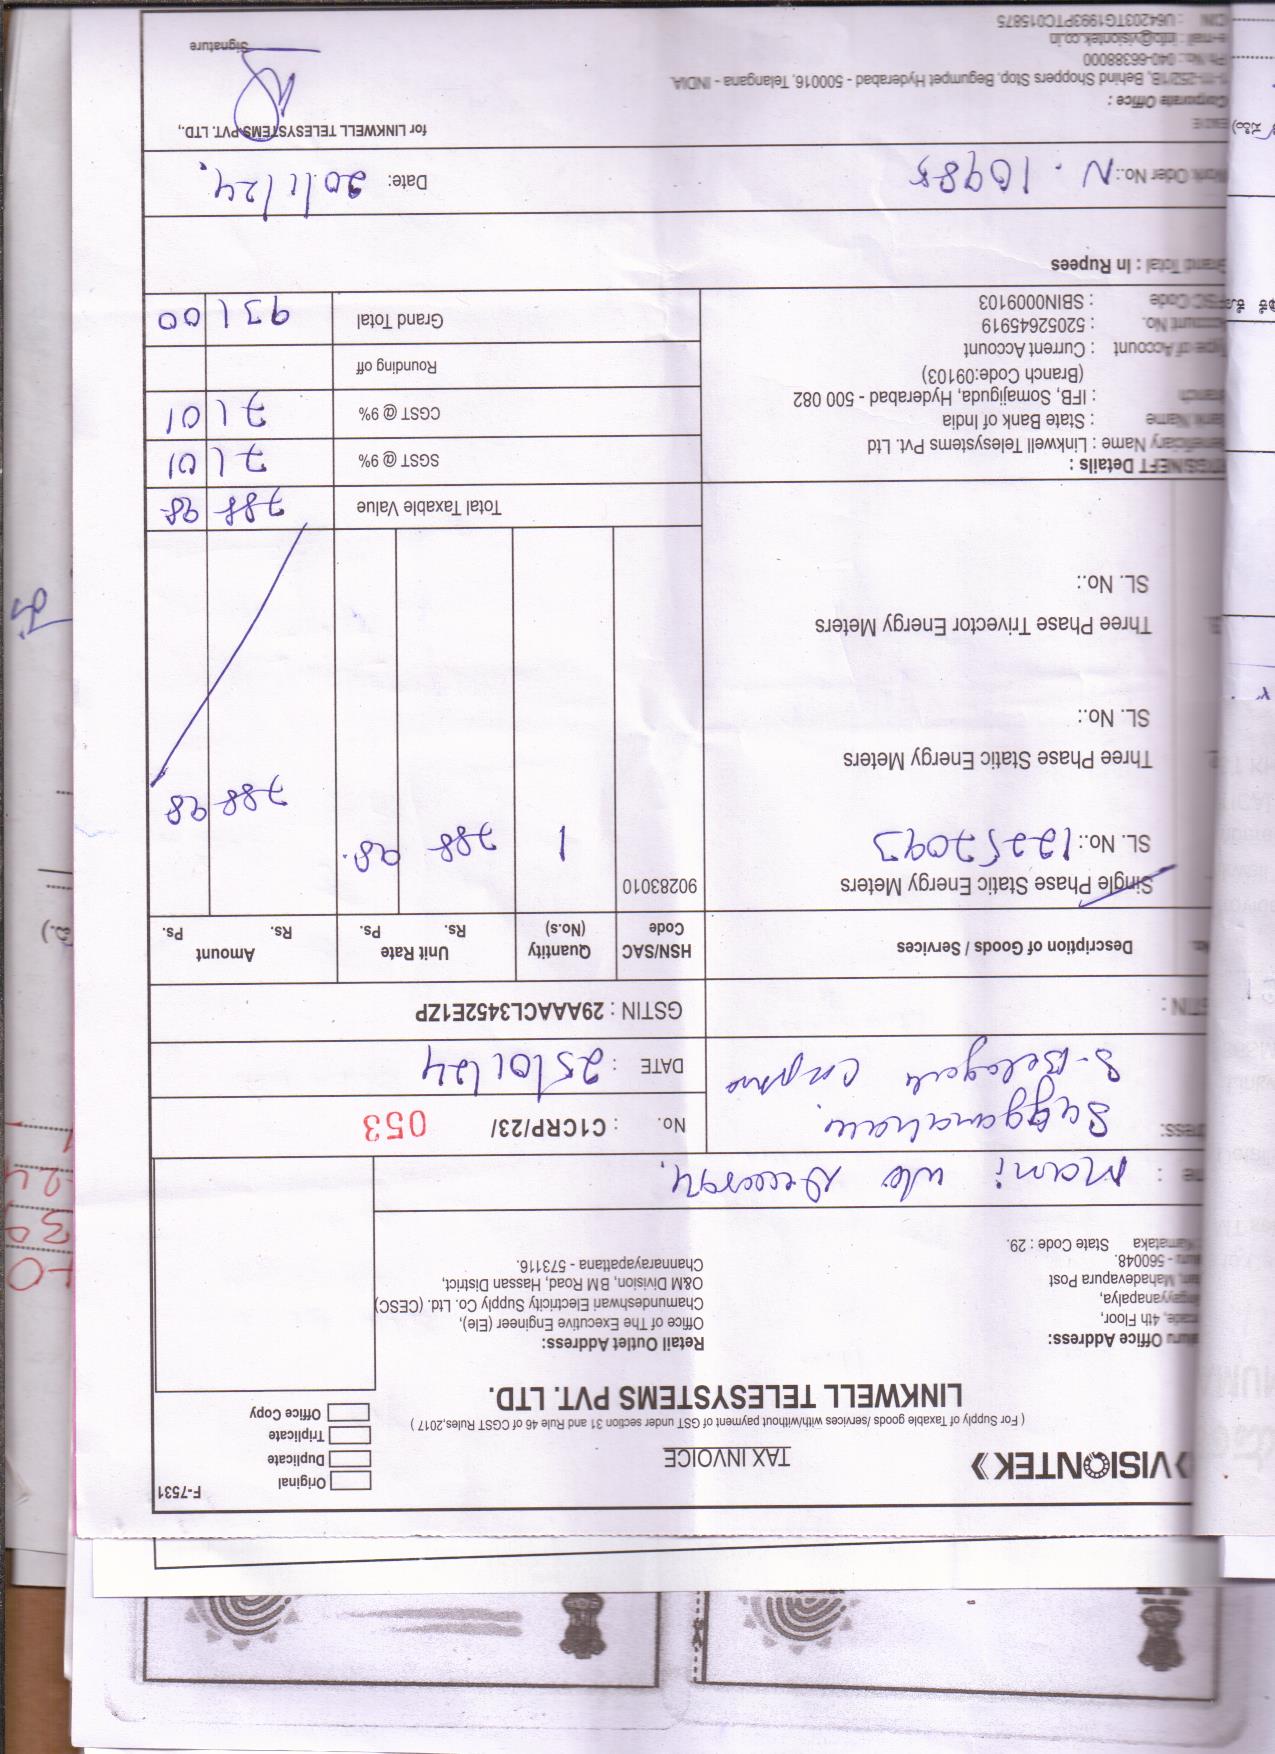 F-7531
VISIONTEK
TAX INVOICE
Original
Duplicate
Triplicate
Office Copy
( For Supply of Taxable goods /services with/without payment of GST under section 31 and Rule 46 of CGST Rules,2017 )
LINKWELL TELESYSTEMS PVT. LTD.
Office Address:
4th Floor,
Mahadevapura Post
- 560048.
Karnataka State Code : 29.
Retail Outlet Address:
Office of The Executive Engineer (Ele),
Chamundeshwari Electricity Supply Co. Ltd. (CESC)
O&M Division, BM Road, Hassan District,
Channarayapattana - 573116.
: Mani w/o
No. : C1CRP/23/ 053
S-Belagola
DATE : 25/01/24
GSTIN : 29AAACL3452E1ZP
Description of Goods / Services
HSN/SAC Code
Quantity (No.s)
Unit Rate Rs. Ps.
Amount Rs. Ps.
Single Phase Static Energy Meters 90283010
SL. No.: 12257093 1 788 98. 788 98
Three Phase Static Energy Meters
SL. No.:
Three Phase Trivector Energy Meters
SL. No.:
Total Taxable Value 788 98
RTGS/NEFT Details :
Beneficiary Name : Linkwell Telesystems Pvt. Ltd
SGST @ 9% 71 01
Bank Name : State Bank of India
Branch : IFB, Somajiguda, Hyderabad - 500 082
(Branch Code:09103)
CGST @ 9% 71 01
Type of Account : Current Account
Rounding off
Account No. : 52052645919
IFSC Code : SBIN0009103
Grand Total 931 00
Grand Total : In Rupees
Work Oder No.: N. 10985
Date: 20/1/24.
for LINKWELL TELESYSTEMS PVT. LTD.,
Corporate Office :
1-11-252/1B, Behind Shoppers Stop, Begumpet Hyderabad - 500016, Telangana - INDIA.
Ph No.: 040-66388000
e-mail : info@visiontek.co.in
CIN : U64203TG1993PTC015875
Signature